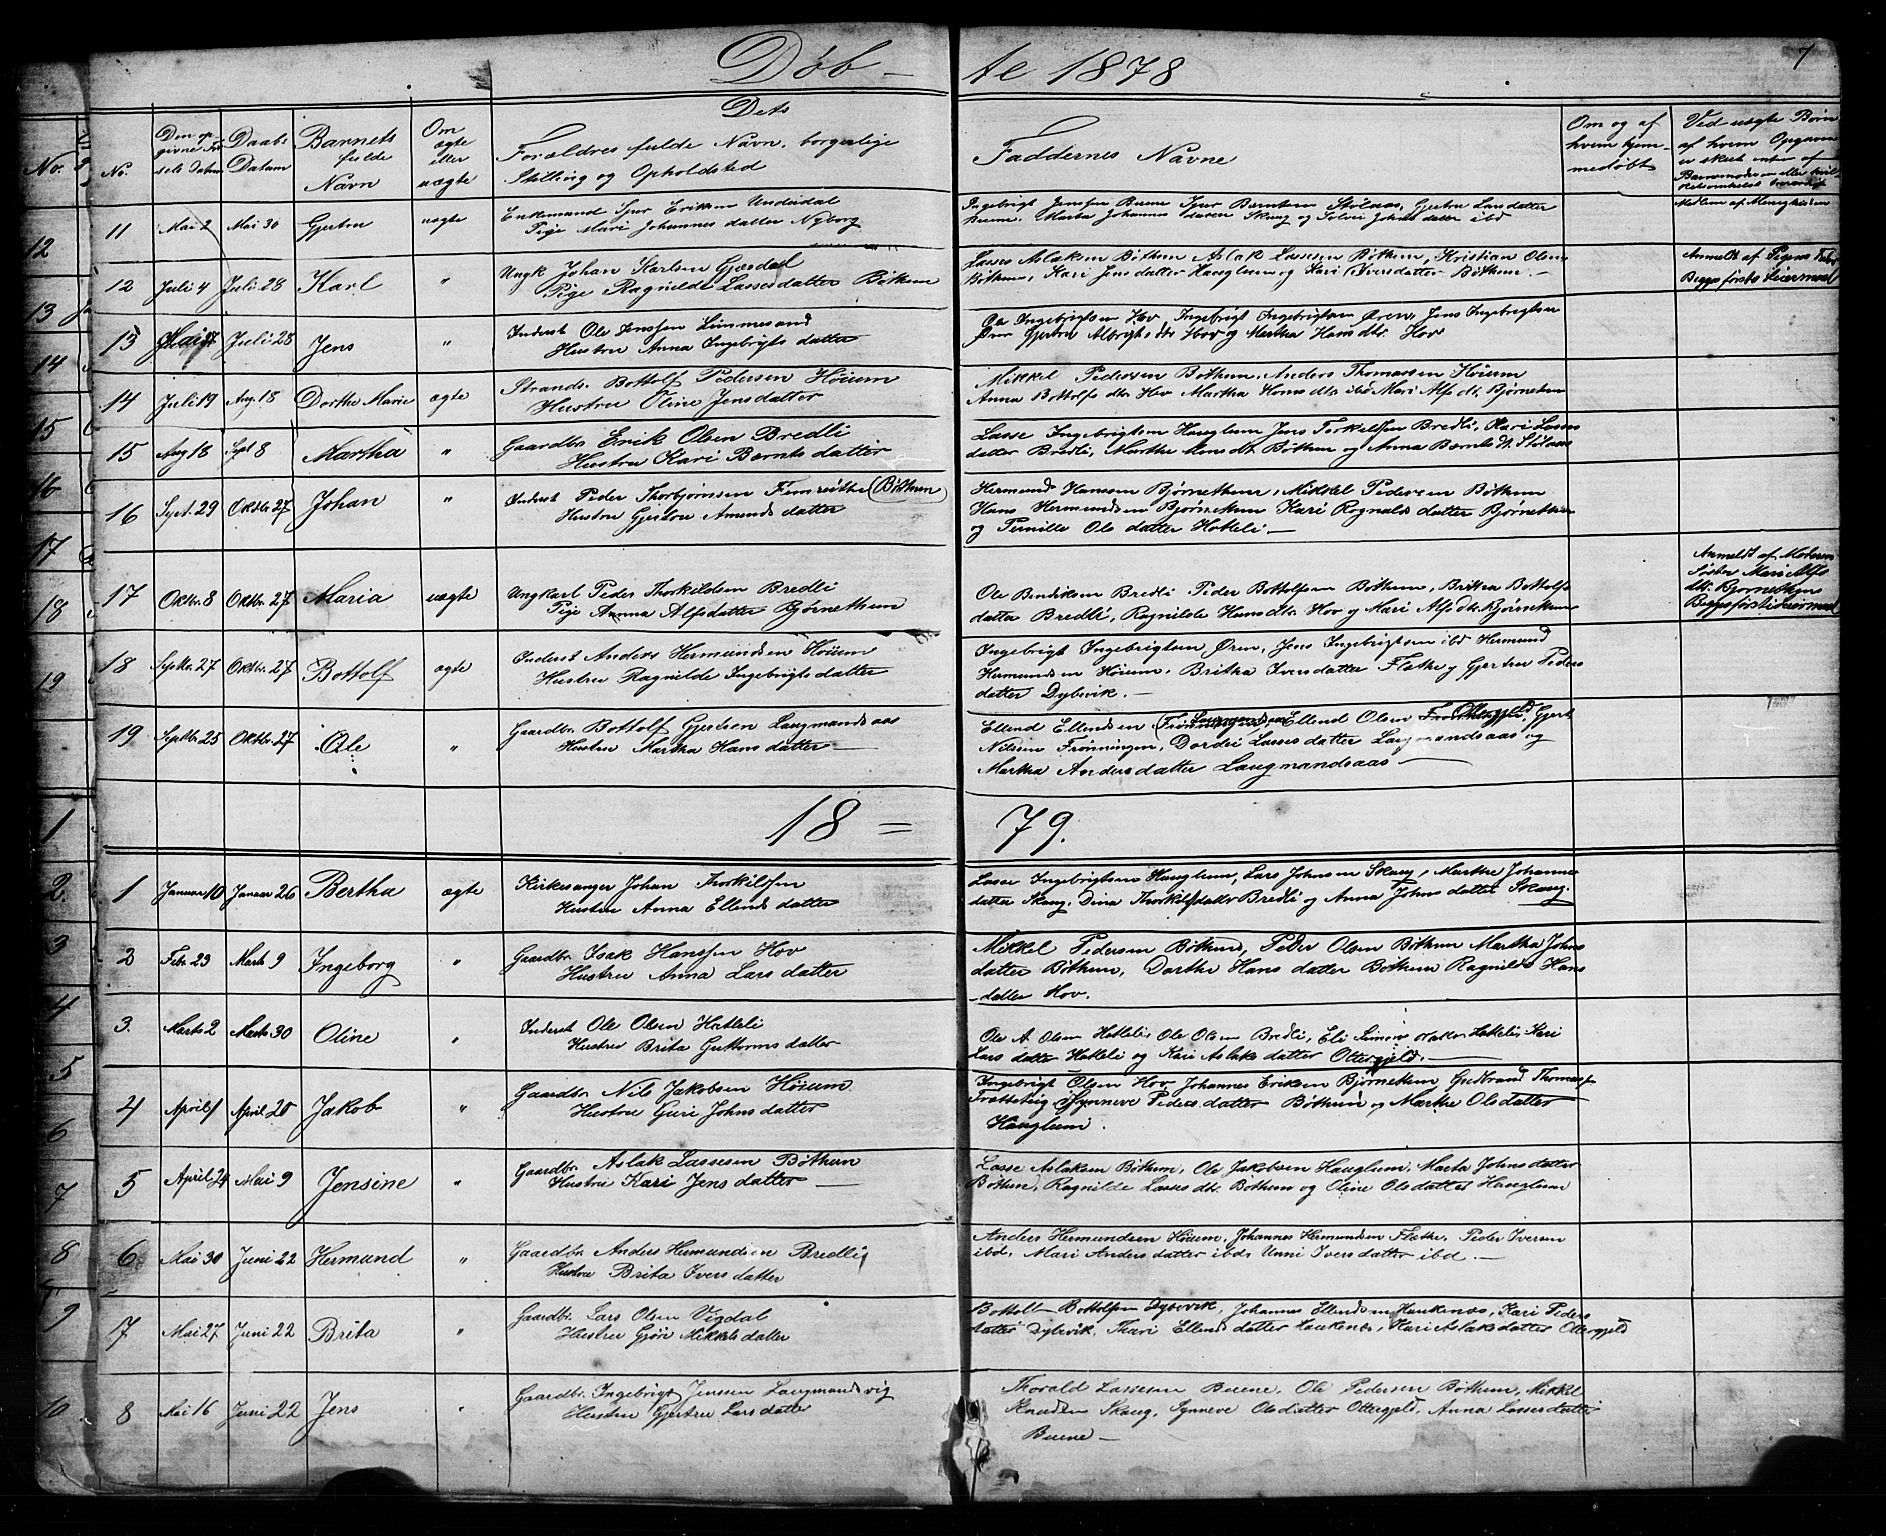 7
Døb- te 1878
No.
Den opgivne Fødsels datum
Daabs Datum
Barnets fulde Navn
Om ægte eller uægte
Dets Forældres fulde Navn, borgerlige
Stilling og Opholdsted
Faddernes Navne
Om og af hvem hjemmedøbt
Ved uægte Børn af hvem Opgaven er skeet
11 Mai 2 Mai 30 Gjertru uægte Enkemand Sjur Eriksen Undredal
Pige Mari Johannesdatter Nyborg
Ingebrigt Jensen Buene Sjur Berntsen Stølaas, Gjertru Larsdatter
Buene. Marta Johannesdatter Skaug og Johnsdatter ibd
12 Juli 4 Juli 28 Karl " Ungk Johan Karlsen Gjesdal
Pige Ragnilde Lassesdatter Bøthun
Lasse Aslaksen Bøthun Aslak Lassesen Bøthun, Kristian Olsen
Bøthun, Kari Jensdatter Hauglum og Kari Iversdatter Bøthun. —
Anmeldt af Pigens Fader
Begges første Leiermaal
13 Juli 28 Jens " Inderst Ole Jenssen Limmesand
Hustru Anna Ingebrigtsdatter
Ole Ingebrigtsen Hov, Ingebrigt Ingebrigtsen Øren, Jens Ingebrigtsen
Øren Gjertru Albrigtsdtr Hov og Martha Hansdtr Hov
14 Juli 19 Aug. 18 Dorthe Marie ægte Strands. Bottolf Pedersen Høium
Hustru Oline Jensdatter
Mikkel Pedersen Bøthun, Anders Thomassen Høium
Anna Bottolfsdtr Hov Martha Hansdtr ibd Mari Alfsdtr Bjørnethun
15 Aug 18 Sept 8 Martha " Gaardbr. Erik Olsen Bredli
Hustru Kari Berntsdatter
Lasse Ingebrigtsen Hauglum Jens Torkelsen Bredli, Kari Lasses
datter Bredli, Marthe Monsdtr Bøthun og Anna Berntsdtr Stølaas
16 Sept. 29 Oktbr. 27 Johan " Inderst Peder Thorbjørnsen Fimreithe (Bøthun)
Hustru Gjertru Amundsdatter
Hermund Hansen Bjørnethun, Mikkel Pedersen Bøthun
Hans Hermundsen Bjørnethun Kari Rognaldsdatter Bjørnethun
og Pernille Olsdatter Hatleli —
17 Oktbr. 8 Oktbr. 27 Maria uægte Ungkarl Peder Thorkildsen Bredli
Pige Anna Alfsdatter Bjørnethun
Ole Bendiksen Bredli Peder Bottolfsen Bøthun, Brithe Bottolfs
datter Bredli, Ragnilde Hansdtr. Hov og Mari Alfsdtr Bjørnethun
Anmeldt af Moderens
Søster Mari Alfs
dtr. Bjørnethun
Begges første Leiermaal
18 Septbr. 27 Oktbr. 27 Bottolf ægte Inderst Anders Hermundsen Høium
Hustru Ragnilde Ingebrigtsdatter
Ingebrigt Ingebrigtsen Øren, Jens Ingebrigtsen ibd Hermund
Hermundsen Høium. Britha Iversdatter Flathe og Gjertru Peders
datter Dybevik. —
19 Septbr 25 Oktbr. 27 Ole " Gaardbr. Bottolf Gjertsen Laugmandsaas
Hustru Martha Hansdatter —
Ellend Ellendsen Ellend Olsen Ottergjeld Gjert
Nilsen Frønningen, Dordei Lassesdatter Laugmandsaas og
Martha Andersdatter Laugmandsaas —
18 = 79.
1 Januar 10 Januar 26 Bertha ægte Kirkesanger Johan Thorkilsen
Hustru Anna Ellendsdatter
Lasse Ingebrigtsen Hauglum, Lars Johnsen Skaug, Marthe Johannes
datter Skaug. Dina Thorkilsdatter Bredli og Anna Johnsdatter Skaug.
2 Febr. 23 Marts 9 Ingeborg " Gaardbr. Isak Hanssen Hov
Hustru Anna Larsdatter
Mikkel Pedersen Bøthun, Peder Olsen Bøthun Martha Johns
datter Bøthun, Dorthe Hansdatter Bøthun Ragnilde Hans
datter Hov.
3. Marts 2 Marts 30 Oline " Inderst Ole Olsen Hatleli
Hustru Brita Guttormsdatter
Ole A. Olsen Hatleli, Ole Olsen Bredli, Eli datter Hatleli, Kari
Larsdatter Hatleli og Kari Aslaksdatter Ottergjeld. —
4 April 1 April 20 Jakob " Gaardbr. Nils Jakobsen Høium
Hustru Guri Johnsdatter
Ingebrigt Olsen Hov Johannes Eriksen Bjørnethun, Gudbrand Thomas
Trætteteig Synneve Pedersdatter Bøthun og Marthe Olsdatter
Hauglum.
5 April 24 Mai 9 Jensine " Gaardbr. Aslak Lassesen Bøthun
Hustru Kari Jensdatter —
Lasse Aslaksen Bøthun. Ole Jakobsen Hauglum. Marta Johnsdatter
Bøthun, Ragnilde Lassesdtr. Bøthun og Oline Olsdatter Hauglum
6 Mai 30 Juni 22 Hermund " Gaardbr. Anders Hermundsen Bredli
Hustru Brita Iversdatter
Anders Hermundsen Høium. Johannes Hermundsen Flathe. Peder Iversen
ibd. Mari Andersdatter ibd. Unni Iversdatter ibd. —
7 Mai 27 Juni 22 Brita " Gaardbr. Lars Olsen Vigdal
Hustru Gjøri Mikkelsdatter
Bottolf Bottolfsen Dybevik, Johannes Ellendsen Haukenæs, Kari Peders
datter Dybevik. Thari Ellendsdatter Haukenæs, Kari Aslaksdatter Ottergjeld
8 Mai 16 Juni 22 Jens " Gaardbr. Ingebrigt Jenssen Laugmandsvig
Hustru Gjertru Larsdatter
Thorald Lassesen Buene. Ole Pedersen Bøthun. Mikkel
Knudsen Skaug. Synneve Olsdatter Ottergjeld. Anna Lassesdatter
Buene —